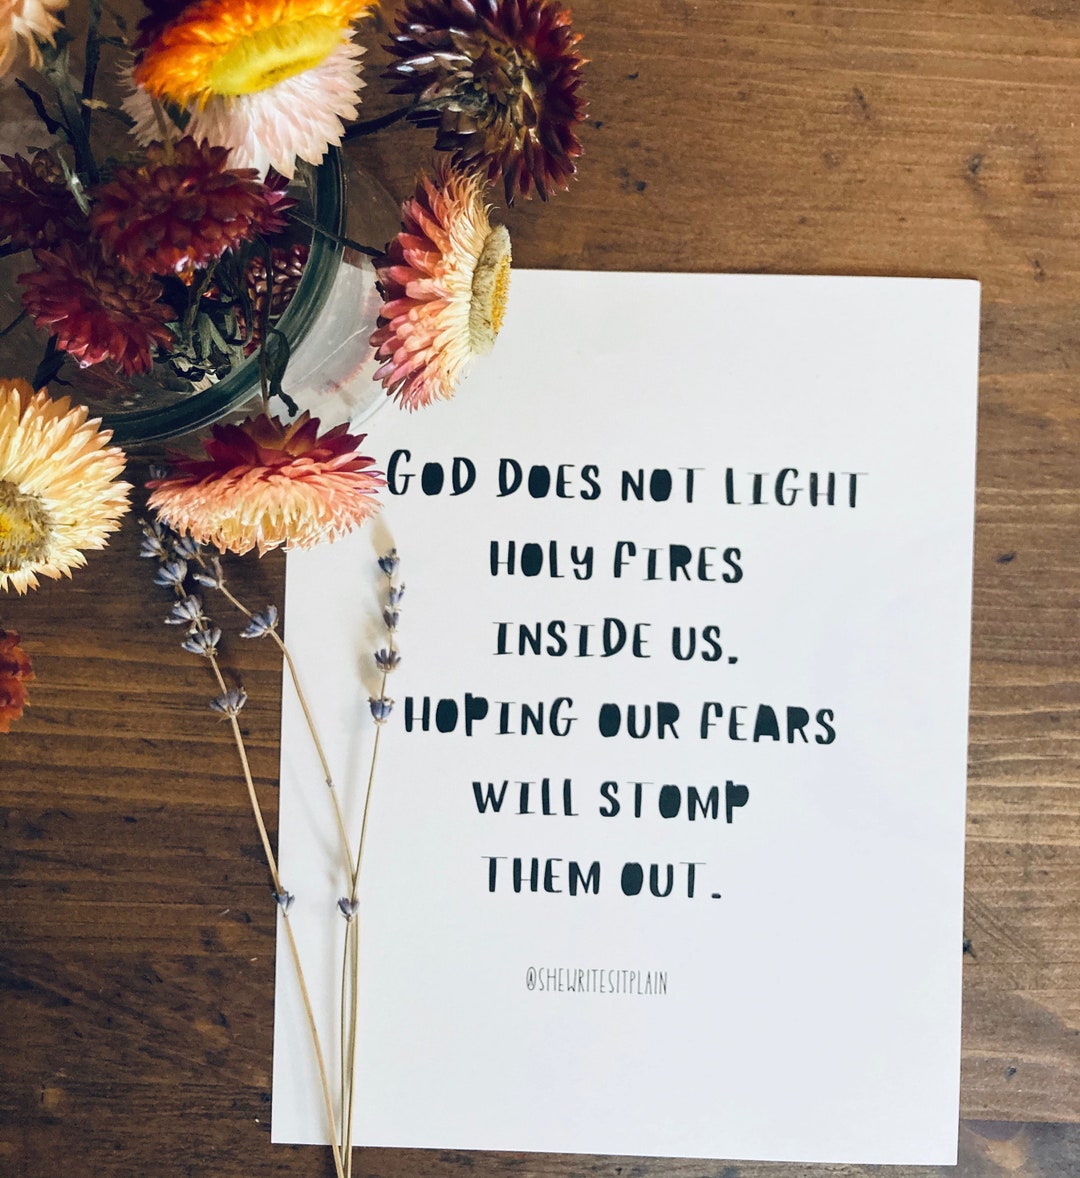 GOD DOES NOT LIGHT
HOLY FIRES
INSIDE US.
HOPING OUR FEARS
WILL STOMP
THEM OUT.
@SHEWRITESITPLAIN